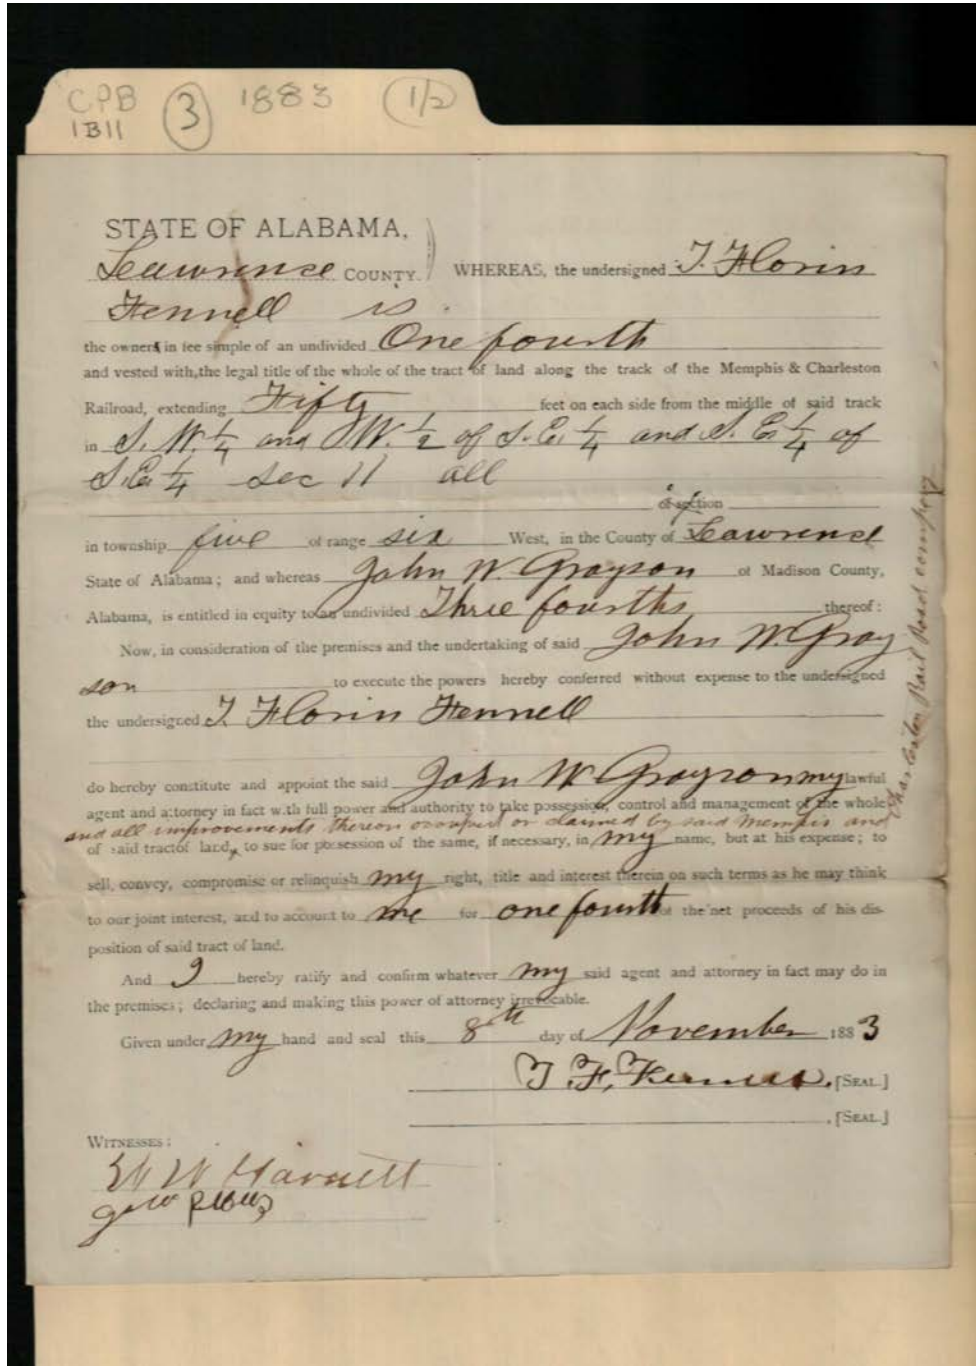 CPB 3 1883 (1/2)
1B11
STATE OF ALABAMA,
Lawrence COUNTY. WHEREAS, the undersigned T. Florin
Fennell is
the owner in fee simple of an undivided One fourth
and vested with, the legal title of the whole of the tract of land along the track of the Memphis & Charleston
Railroad, extending Fifty feet on each side from the middle of said track
in S. W. 1/4 and W. 1/2 of S. E. 1/4 and S. E. 1/4 of
S. E. 1/4 sec 11 all
of section
in township five of range six West, in the County of Lawrence
State of Alabama; and whereas John W. Grayson of Madison County,
Alabama, is entitled in equity to an undivided Three fourths thereof:
Now, in consideration of the premises and the undertaking of said John W. Gray
son to execute the powers hereby conferred without expense to the undersigned
the undersigned T Florin Fennell
do hereby constitute and appoint the said John W Grayson my lawful
agent and attorney in fact with full power and authority to take possession, control and management of the whole
and all improvements thereon occupied or claimed by said Memphis and
Charleston Rail Road company
of said tract of land, to sue for possession of the same, if necessary, in my name, but at his expense; to
sell, convey, compromise or relinquish my right, title and interest therein on such terms as he may think
to our joint interest, and to account to me for one fourth of the net proceeds of his dis-
position of said tract of land.
And I hereby ratify and confirm whatever my said agent and attorney in fact may do in
the premises; declaring and making this power of attorney irrevocable.
Given under my hand and seal this 8th day of November 1883
T. F. Fennell. [SEAL.]
, [SEAL.]
WITNESSES: